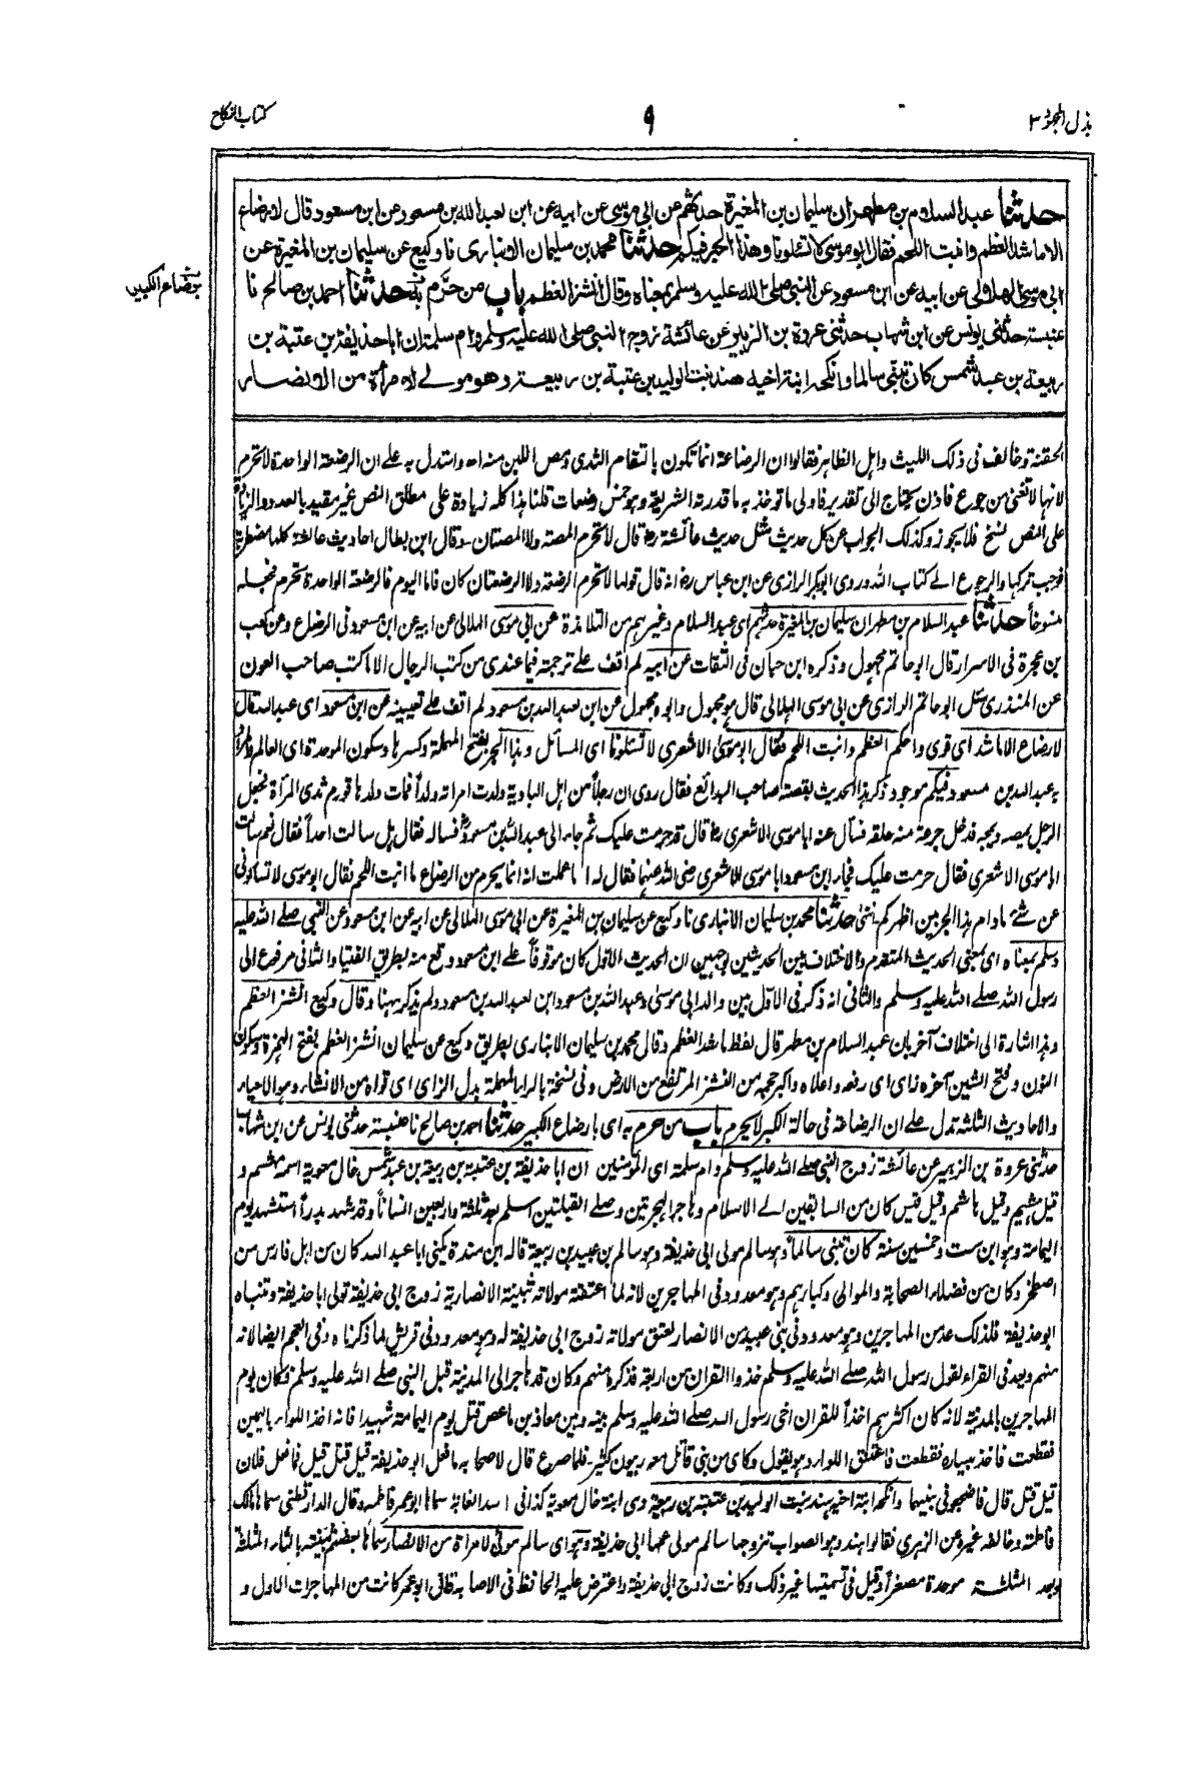 بذل المجهود ٣
٩
كتاب النكاح
حدثنا عبد السلام بن مطهر ان سليمان بن المغيرة حدثهم عن ابى موسى عن ابيه عن ابن لعبد الله بن مسعود عن ابن مسعود قال لا رضاع
الا ما شد العظم وانبت اللحم فقال ابو موسى لا تسئلونا وهذا الحبر فيكم حدثنا محمد بن سليمان الانبارى نا وكيع عن سليمان بن المغيرة عن
ابى موسى الهلالى عن ابيه عن ابن مسعود عن النبى صلى الله عليه وسلم بمعناه وقال انشز العظم باب من حرم به حدثنا احمد بن صالح نا
برضاعة الكبير
عنبسة حدثنى يونس عن ابن شهاب حدثنى عروة بن الزبير عن عائشة زوج النبى صلى الله عليه وسلم وام سلمة ان ابا حذيفة بن عتبة بن
ربيعة بن عبد شمس كان تبنى سالما وانكحه ابنة اخيه هند بنت الوليد بن عتبة بن ربيعة وهو مولى لامرأة من الانصار
الحقنة وخالف فى ذلك الليث واهل الظاهر فقالوا ان الرضاعة انما تكون بالتقام الثدى ومص اللبن منه اه واستدل به على ان الرضعة الواحدة لا تحرم
لانها لا تغنى من جوع فاذن يحتاج الى تقدير فاولى ما تؤخذ به ما قدرته الشريعة وهو خمس رضعات قلنا هذا كله زيادة على مطلق النص غير مقيد بالعدد والزيادة
على النص نسخ فلا يجوز وكذلك الجواب عن كل حديث مثل حديث عائشة رض قال لا تحرم المصة ولا المصتان ـ وقال ابن بطال احاديث عائشة كلها مضطربة
فوجب تركها والرجوع الى كتاب الله وروى ابو بكر الرازى عن ابن عباس رض انه قال قولها لا تحرم الرضعة ولا الرضعتان كان فاما اليوم فالرضعة الواحدة تحرم فجعله
منسوخاً حدثنا عبد السلام بن مطهر ان سليمان بن المغيرة حدثهم اى عبد السلام وغيرهم من التلامذة عن ابى موسى الهلالى عن ابيه عن ابن مسعود فى الرضاع وعن كعب
بن عجرة فى الاسرار قال ابو حاتم مجهول وذكره ابن حبان فى الثقات عن ابيه لم اقف على ترجمة فيما عندى من كتب الرجال الا اكتب صاحب العون
عن المنذرى سئل ابو حاتم الرازى عن ابى موسى الهلالى قال هو مجهول وابوه مجهول عن ابن لعبد الله بن مسعود لم اقف على تعيينه عن ابن مسعود اى عبد الله قال
لا رضاع الا ما شد اى قوى واحكم العظم وانبت اللحم فقال ابو موسى الاشعرى لا تسئلونا اى المسائل وهذا الحبر بفتح المهملة وكسرها وسكون الموحدة اى العالم والمراد
به عبد الله بن مسعود فيكم موجود ذكر هذا الحديث بقصته صاحب البدائع فقال روى ان رجلاً من اهل البادية ولدت امراته ولداً فمات ولدها فورم ثدى المرأة فجعل
الرجل يمصه ويمجه فدخل جرعة منه حلقه فسأل عنه ابا موسى الاشعرى رض قال قد حرمت عليك ثم جاء الى عبد الله بن مسعود رض فساله فقال هل سالت احداً فقال نعم سالت
ابا موسى الاشعرى فقال حرمت عليك فجاء ابن مسعود ابا موسى الاشعرى رضى الله عنهما فقال له اما علمت انه انما يحرم من الرضاع ما انبت اللحم فقال ابو موسى لا تسئلونى
عن شئ ما دام هذا الحبر بين اظهركم ـ انتهى حدثنا محمد بن سليمان الانبارى نا وكيع عن سليمان بن المغيرة عن ابى موسى الهلالى عن ابيه عن ابن مسعود عن النبى صلى الله عليه
وسلم بمعناه اى بمعنى الحديث المتقدم والاختلاف بين الحديثين بوجهين ان الحديث الاول كان موقوفاً على ابن مسعود وقع منه بطريق الفتيا والثانى مرفوع الى
رسول الله صلى الله عليه وسلم والثانى انه ذكر فى الاول بين والد ابى موسى وعبد الله بن مسعود ابن لعبد الله بن مسعود ولم يذكر ههنا وقال وكيع انشز العظم
وهذا اشارة الى اختلاف آخر بان عبد السلام بن مطهر قال بلفظ ما شد العظم وقال محمد بن سليمان الانبارى بطريق وكيع عن سليمان انشز العظم بفتح الهمزة وسكون
النون وفتح الشين آخره زاى اى رفعه واعلاه واكبر حجمه من النشز المرتفع من الارض وفى نسخة بالراء المهملة بدل الزاى اى قواه من الانشار وهو الاحياء
والاحاديث الثلثة تدل على ان الرضاعة فى حالة الكبر لا يحرم باب من حرم به اى بارضاع الكبير حدثنا احمد بن صالح نا عنبسة حدثنى يونس عن ابن شهاب
حدثنى عروة بن الزبير عن عائشة زوج النبى صلى الله عليه وسلم وام سلمة اى ام المؤمنين ان ابا حذيفة بن عتبة بن ربيعة بن عبد شمس خال معوية اسمه مهشم و
قيل هشيم وقيل هاشم وقيل قيس كان من السابقين الى الاسلام وهاجر الهجرتين وصلى القبلتين اسلم بعد ثلثة واربعين انساناً وقد شهد بدراً استشهد يوم
اليمامة وهو ابن ست وخمسين سنة كان تبنى سالماً وهو سالم مولى ابى حذيفة وهو سالم بن عبيد بن ربيعة قاله ابن مندة يكنى ابا عبد الله كان من اهل فارس من
اصطخر وكان من فضلاء الصحابة والموالى وكبارهم وهو معدود فى المهاجرين لانه لما اعتقته مولاته ثبيتة الانصارية زوج ابى حذيفة تولى ابا حذيفة وتبناه
ابو حذيفة فلذلك عد من المهاجرين وهو معدود فى بنى عبيد من الانصار لعتق مولاته زوج ابى حذيفة له وهو معدود فى قريش لما ذكرناه وفى العجم ايضا لانه
منهم ويعد فى القراء لقول رسول الله صلى الله عليه وسلم خذوا القرآن من اربعة فذكره منهم وكان قد هاجر الى المدينة قبل النبى صلى الله عليه وسلم فكان يوم
المهاجرين بالمدينة لانه كان اكثرهم اخذاً للقران اخى رسول الله صلى الله عليه وسلم بينه وبين معاذ بن ماعص قتل يوم اليمامة شهيدا فانه اخذ اللواء باليمين
فقطعت فاخذ بيساره فقطعت فاعتنق اللواء وهو يقول وكاى من نبى قاتل معه ربيون كثير ـ فلما صرع قال لاصحابه ما فعل ابو حذيفة قيل قتل قيل فما فعل فلان
قيل قتل قال فاضجعونى بينهما وانكحه ابنة اخيه هند بنت الوليد بن عتبة بن ربيعة وهى ابنة خال معوية كذا فى اسد الغابة سماها ابو عمر فاطمة وقال الدارقطنى سماها مالك
فاطمة وخالفه غيره عن الزهرى فقالوا هند وهو الصواب تزوجها سالم مولى عمها ابى حذيفة وهو اى سالم مولى لامراة من الانصار سماها بعضهم ثبيتة بالثاء المثلثة
وبعد المثلثة موحدة مصغراً وقيل فى تسميتها غير ذلك وكانت زوج ابى حذيفة واعترض عليه الحافظ فى الاصابة فقال ابو عمر كانت من المهاجرات الاول و